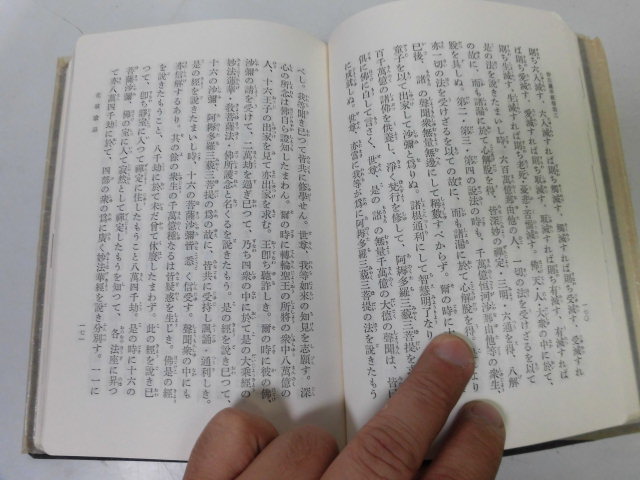 妙法蓮華經卷第三
則ち六入滅す、六入滅すれば則ち觸滅す、觸滅すれば則ち受滅す、受滅すれば
則ち愛滅す、愛滅すれば則ち取滅す、取滅すれば則ち有滅す、有滅すれば
則ち生滅す、生滅すれば則ち老死・憂悲・苦惱滅す。佛、天・人・大衆の中に於て、
是の法を說きたまいし時、六百萬億那由他の人、一切の法を受けざるを以て
の故に、而も諸漏に於て心解脫を得、皆深妙の禪定・三明・六通を得、八解
脫を具しぬ。第二・第三・第四の說法の時も、千萬億恒河沙那由他等の衆生、
亦一切の法を受けざるを以ての故に、而も諸漏に於て心解脫を得 より
已後、諸の聲聞衆無量無邊にして稱數すべからず。爾の時に
童子を以て出家して沙彌と爲りぬ。諸根通利にして智慧明了なり
百千萬億の諸佛を供養し、淨く梵行を修して、阿耨多羅三藐三菩提を求
俱に佛に白して言さく、世尊、是の諸の無量千萬億の大德の聲聞は、皆
に成就しぬ。世尊、亦當に我等が爲に阿耨多羅三藐三菩提の法を說きたもう
一七〇
べし。我等聞き已つて皆共に修學せん。世尊、我等如來の知見を志願す。深
心の所念は佛自ら證知したまわん。爾の時に轉輪聖王の所將の衆中八萬億の
人、十六王子の出家を見て亦出家を求む。王卽ち聽許しき。爾の時に彼の佛、
沙彌の請を受けて、二萬劫を過ぎ已つて、乃ち四衆の中に於て是の大乘經の
妙法蓮華・敎菩薩法・佛所護念と名くるを說きたもう。是の經を說き已つて、
十六の沙彌、阿耨多羅三藐三菩提の爲の故に、皆共に受持し諷誦し通利しき。
是の經を說きたまいし時、十六の菩薩沙彌皆悉く信受す。聲聞衆の中にも
亦信解するあり。其の餘の衆生の千萬億種なるは皆疑惑を生じき。佛是の經
を說きたもうこと、八千劫に於て未だ曾て休廢したまわず。此の經を說き已
つて、卽ち靜室に入つて禪定に住したもうこと八萬四千劫、是の時に十六の
菩薩沙彌、佛の室に入つて寂然として禪定したもうを知つて、各法座に昇つ
て亦八萬四千劫に於て、四部の衆の爲に廣く妙法華經を說き分別す。一一に
化城喩品
一七一